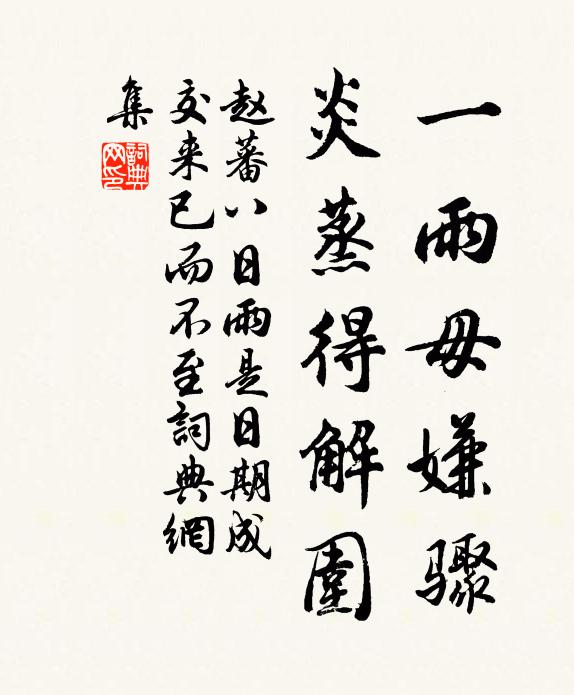 一雨毋嫌骤
炎蒸得解圍
赵蕃八日雨是日期成
父来已而不至詞典網
集
詞典网印